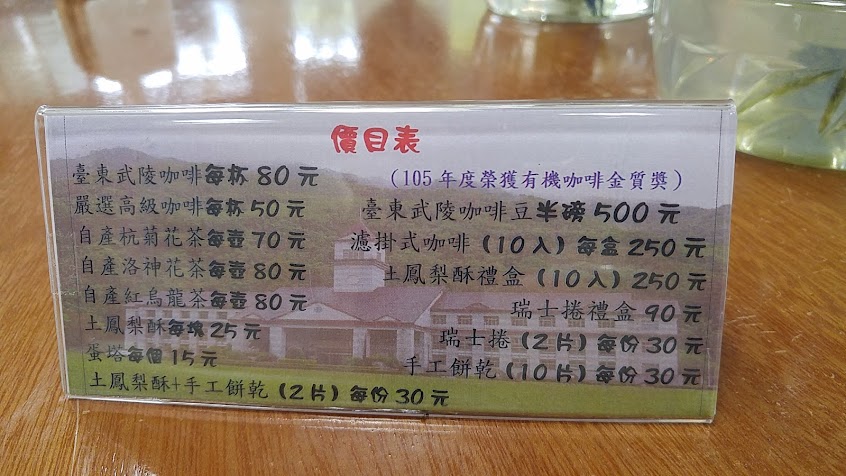 價目表
臺東武陵咖啡每杯 80 元
(105 年度榮獲有機咖啡金質獎)
嚴選高級咖啡每杯 50 元
臺東武陵咖啡豆半磅 500 元
自產杭菊花茶每壺 70 元
濾掛式咖啡 (10 入) 每盒 250 元
自產洛神花茶每壺 80 元
土鳳梨酥禮盒 (10 入) 250 元
自產紅烏龍茶每壺 80 元
瑞士捲禮盒 90 元
土鳳梨酥每塊 25 元
瑞士捲 (2 片) 每份 30 元
蛋塔每個 15 元
手工餅乾 (10 片) 每份 30 元
土鳳梨酥+手工餅乾 (2 片) 每份 30 元